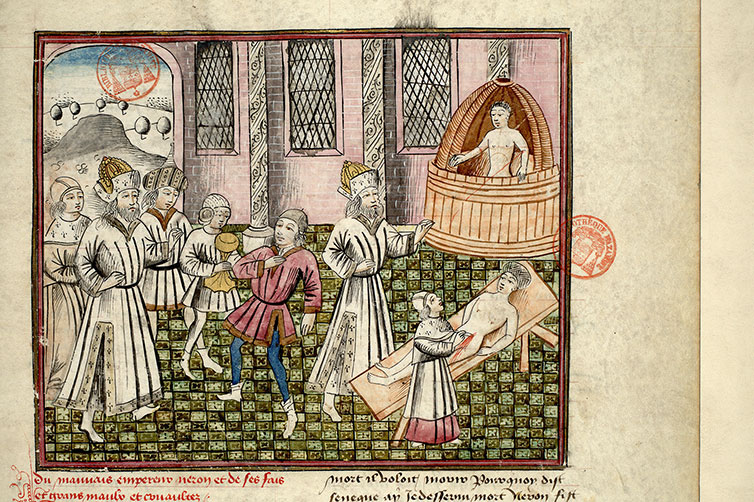 Du mauvais empereur neron et de ses fais
et grans maulx et cruaultez
mort il vouloit mourir Pourquoy dist
seneque ay je desservi mort Neron fist